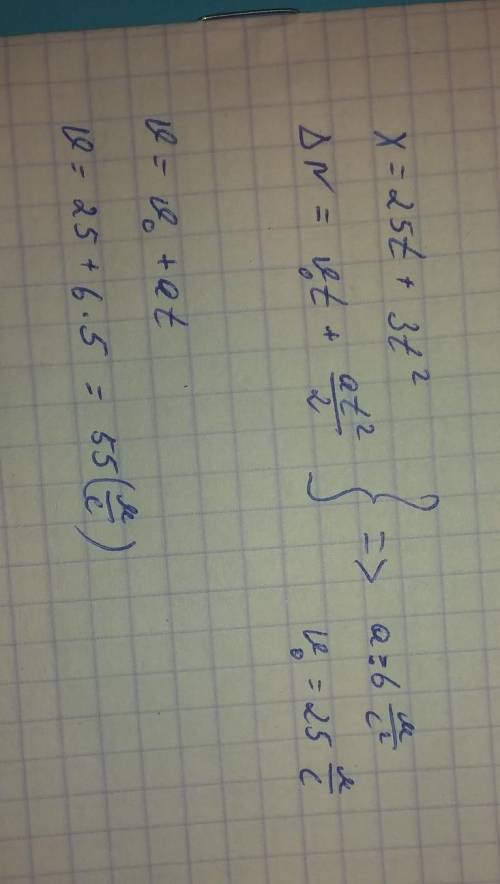 X = 25t + 3t²
Δr = v₀t + at²/2 } => a = 6 м/с²
v₀ = 25 м/с
v = v₀ + at
v = 25 + 6·5 = 55 (м/с)